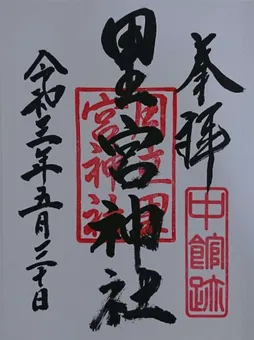 奉拝
中館跡
里宮神社
宮神社
令和三年五月三十日